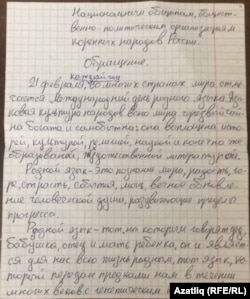 Национальным общинам, общест-
венно-политическим организациям
коренных народов России.
Обращение.
каждый год
21 февраля, во многих странах мира отме-
чается международный день родного языка. Язы-
ковая культура народов всего мира чрезвычай-
но богата и самобытна: она воплощена исто-
рией, культурой, религией, нацией и конечно же
образованием, художественной литературой.
Родной язык - это познание мира, радость, го-
ре, страсть, событья, мечь, вечное обновле-
ние человеческой души, развивающее
прогресса.
Родной язык - тот, на котором говорят дед,
бабушка, отец и мать ребёнка, он и являет-
ся для нас всю жизнь родным, тот язык, ко-
торый передан предками нам в течении
многих веков с генетическим